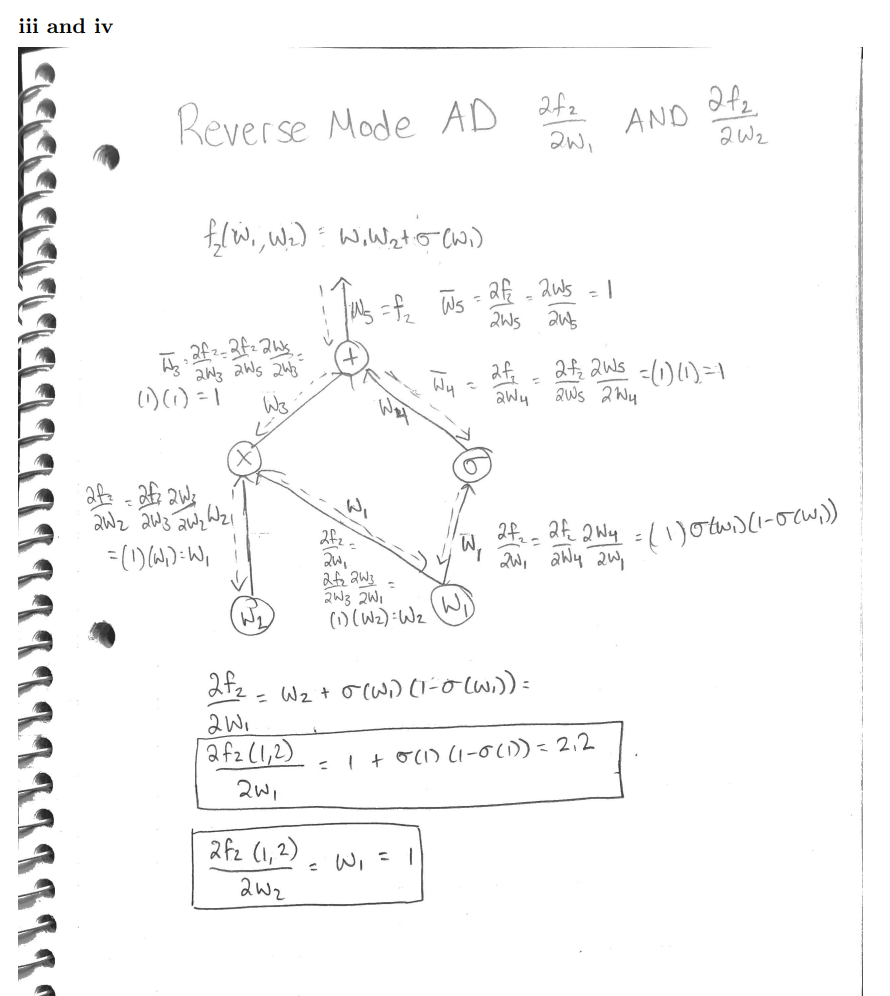 iii and iv
Reverse Mode AD ∂f₂/∂w₁ AND ∂f₂/∂w₂
f₂(w₁,w₂) = w₁w₂+σ(w₁)
w₅ = f₂
w̅₅ = ∂f₂/∂w₅ = ∂w₅/∂w₅ = 1
w̅₃ = ∂f₂/∂w₃ = ∂f₂/∂w₅ ∂w₅/∂w₃ =
(1)(1) = 1
+
w̅₄ = ∂f₂/∂w₄ = ∂f₂/∂w₅ ∂w₅/∂w₄ = (1)(1) = 1
w₃
w₄
×
σ
∂f₂/∂w₂ = ∂f₂/∂w₃ ∂w₃/∂w₂
w₂
= (1)(w₁) = w₁
w₁
∂f₂/∂w₁ =
∂f₂/∂w₃ ∂w₃/∂w₁ =
(1)(w₂) = w₂
w̅₁
∂f₂/∂w₁ = ∂f₂/∂w₄ ∂w₄/∂w₁ = (1)σ(w₁)(1-σ(w₁))
w₂
w₁
∂f₂/∂w₁ = w₂ + σ(w₁)(1-σ(w₁)) =
∂f₂(1,2)/∂w₁ = 1 + σ(1)(1-σ(1)) = 2.2
∂f₂(1,2)/∂w₂ = w₁ = 1